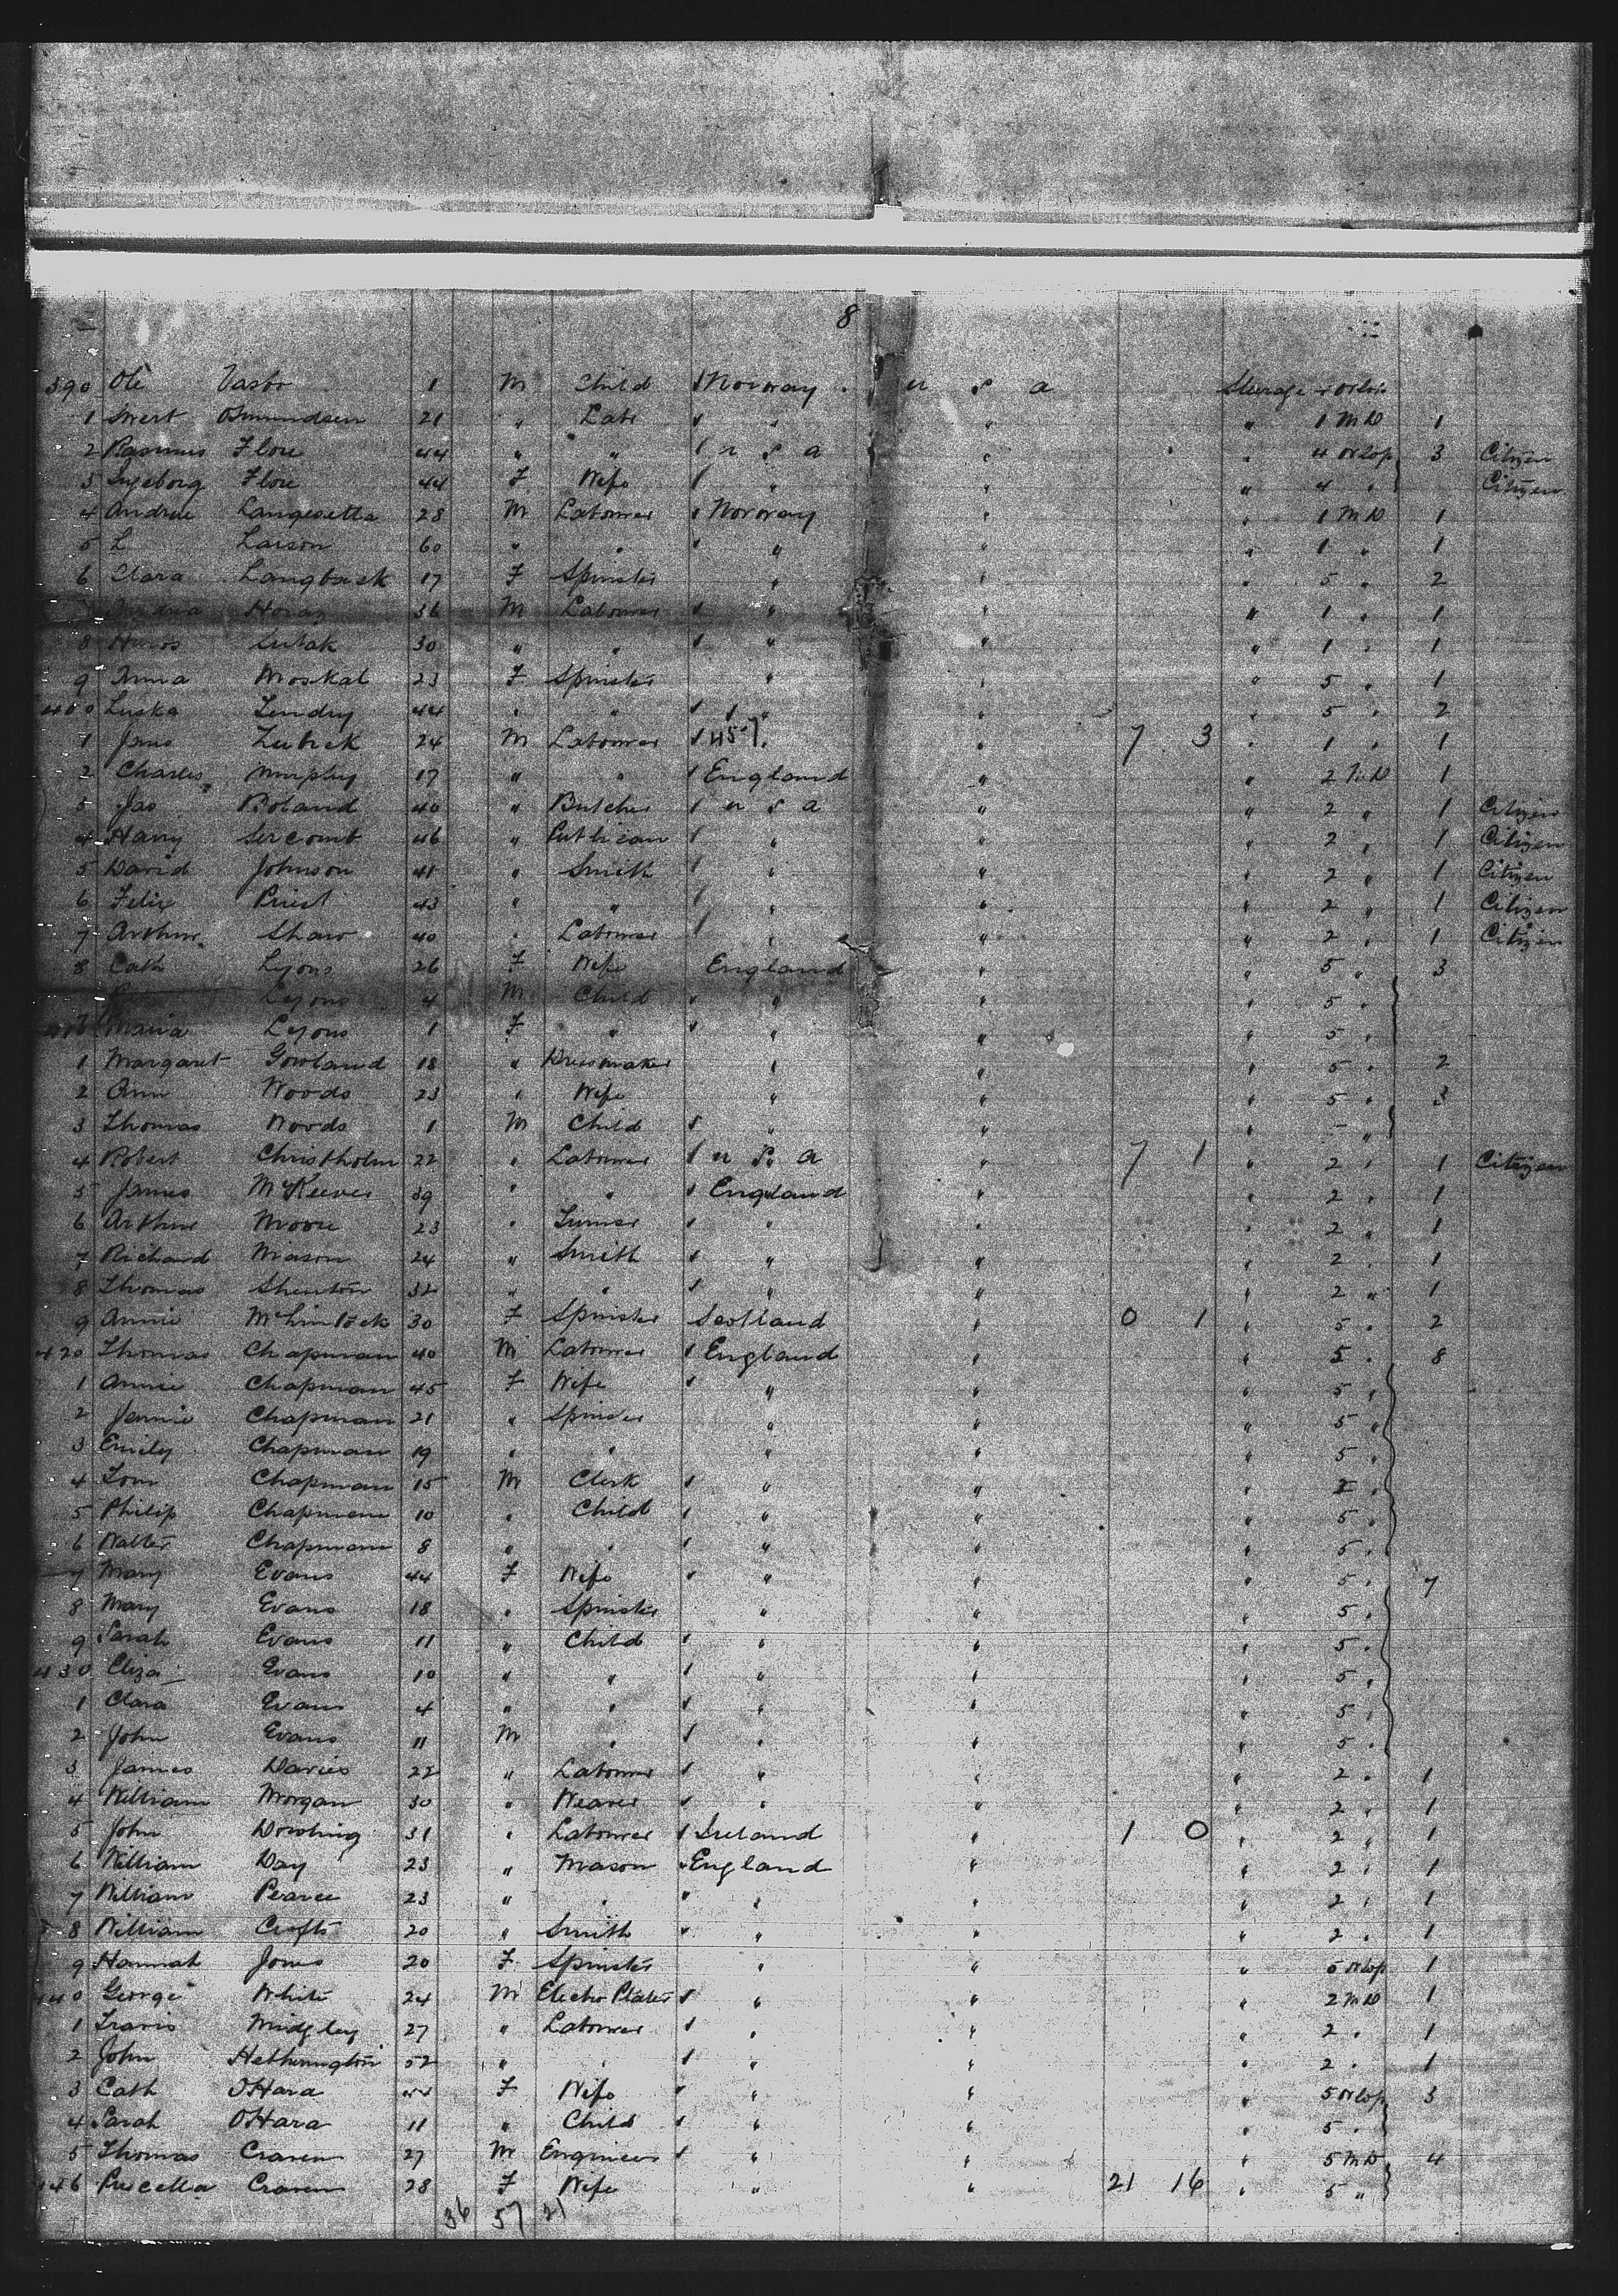 8
390 Ole Vasbo 1 M Child Norway U S A Steerage 4 Orlop
1 Osmundsen 21 " Labr " " " " 1 M D 1
2 Rasmus Flore 44 " " U S A " " 4 Orlop 3 Citizen
3 Ingeborg Flore 44 F Wife " " " 4 " Citizen
4 Andrew 28 M Labourer Norway " " 1 M D 1
5 L Larson 60 " " " " " 1 " 1
6 Clara Langback 17 F Spinster " " " 5 " 2
36 M Labourer " " " 1 " 1
8 30 " " " " " 1 " 1
9 Anna Moskal 23 F Spinster " " " 5 " 1
400 44 " " " " " 5 " 2
1 24 M Labourer " 7 3 " 1 " 1
2 Charles Murphy 17 " " England " " 2 M D 1
3 Jas Boland 40 " Butcher U S A " " 2 " 1 Citizen
4 Harry Sercomb 46 " " " " 2 " 1 Citizen
5 David Johnson 41 " Smith " " " 2 " 1 Citizen
6 Felix Priest 43 " " " " " 2 " 1 Citizen
7 Arthur Shaw 40 " Labourer " " " 2 " 1 Citizen
8 Cath Lyons 26 F Wife England " " 5 " 3
Lyons 4 M Child " " " 5 "
410 Maria Lyons 1 F " " " " 5 "
1 Margaret Gowland 18 " Dressmaker " " " 5 " 2
2 Ann Woods 23 " Wife " " " 5 " 3
3 Thomas Woods 1 M Child " " " "
4 Robert Christholm 22 " Labourer U S A " 7 1 " 2 " 1 Citizen
5 James McKeever 39 " " England " " 2 " 1
6 Arthur Moore 23 " Turner " " " 2 " 1
7 Richard Mason 24 " Smith " " " 2 " 1
8 Thomas Shenton 32 " " " " " 2 " 1
9 Annie McLintock 30 F Spinster Scotland " 0 1 " 5 " 2
420 Thomas Chapman 40 M Labourer England " " 5 " 8
1 Annie Chapman 45 F Wife " " " 5 "
2 Jennie Chapman 21 " Spinster " " " 5 "
3 Emily Chapman 19 " " " " " 5 "
4 Tom Chapman 15 M Clerk " " " "
5 Philip Chapman 10 " Child " " " 5 "
6 Walter Chapman 8 " " " " " 5 "
7 Mary Evans 44 F Wife " " " 5 " 7
8 Mary Evans 18 " Spinster " " " 5 "
9 Sarah Evans 11 " Child " " " 5 "
430 Eliza Evans 10 " " " " " 5 "
1 Clara Evans 4 " " " " " 5 "
2 John Evans 11 M " " " " 5 "
3 James Davies 22 " Labourer " " " 2 " 1
4 William Morgan 30 " Weaver " " " 2 " 1
5 John Dowling 31 " Labourer Ireland " 1 0 " 2 " 1
6 William Day 23 " Mason England " " 2 " 1
7 William Pearce 23 " " " " " 2 " 1
8 William Crofts 20 " Smith " " " 2 " 1
9 Hannah Jones 20 F Spinster " " " 5 Orlop 1
440 George White 24 M Electro Plater " " " 2 M D 1
1 Travis Midgley 27 " Labourer " " " 2 " 1
2 John Hetherington 52 " " " " " 2 " 1
3 Cath OHara 44 F Wife " " " 5 Orlop 3
4 Sarah OHara 11 " Child " " " 5 "
5 Thomas Craven 27 M Engineer " " " 5 M D 4
446 Priscella Craven 28 F Wife " " 21 16 " 5 "
36 57 21